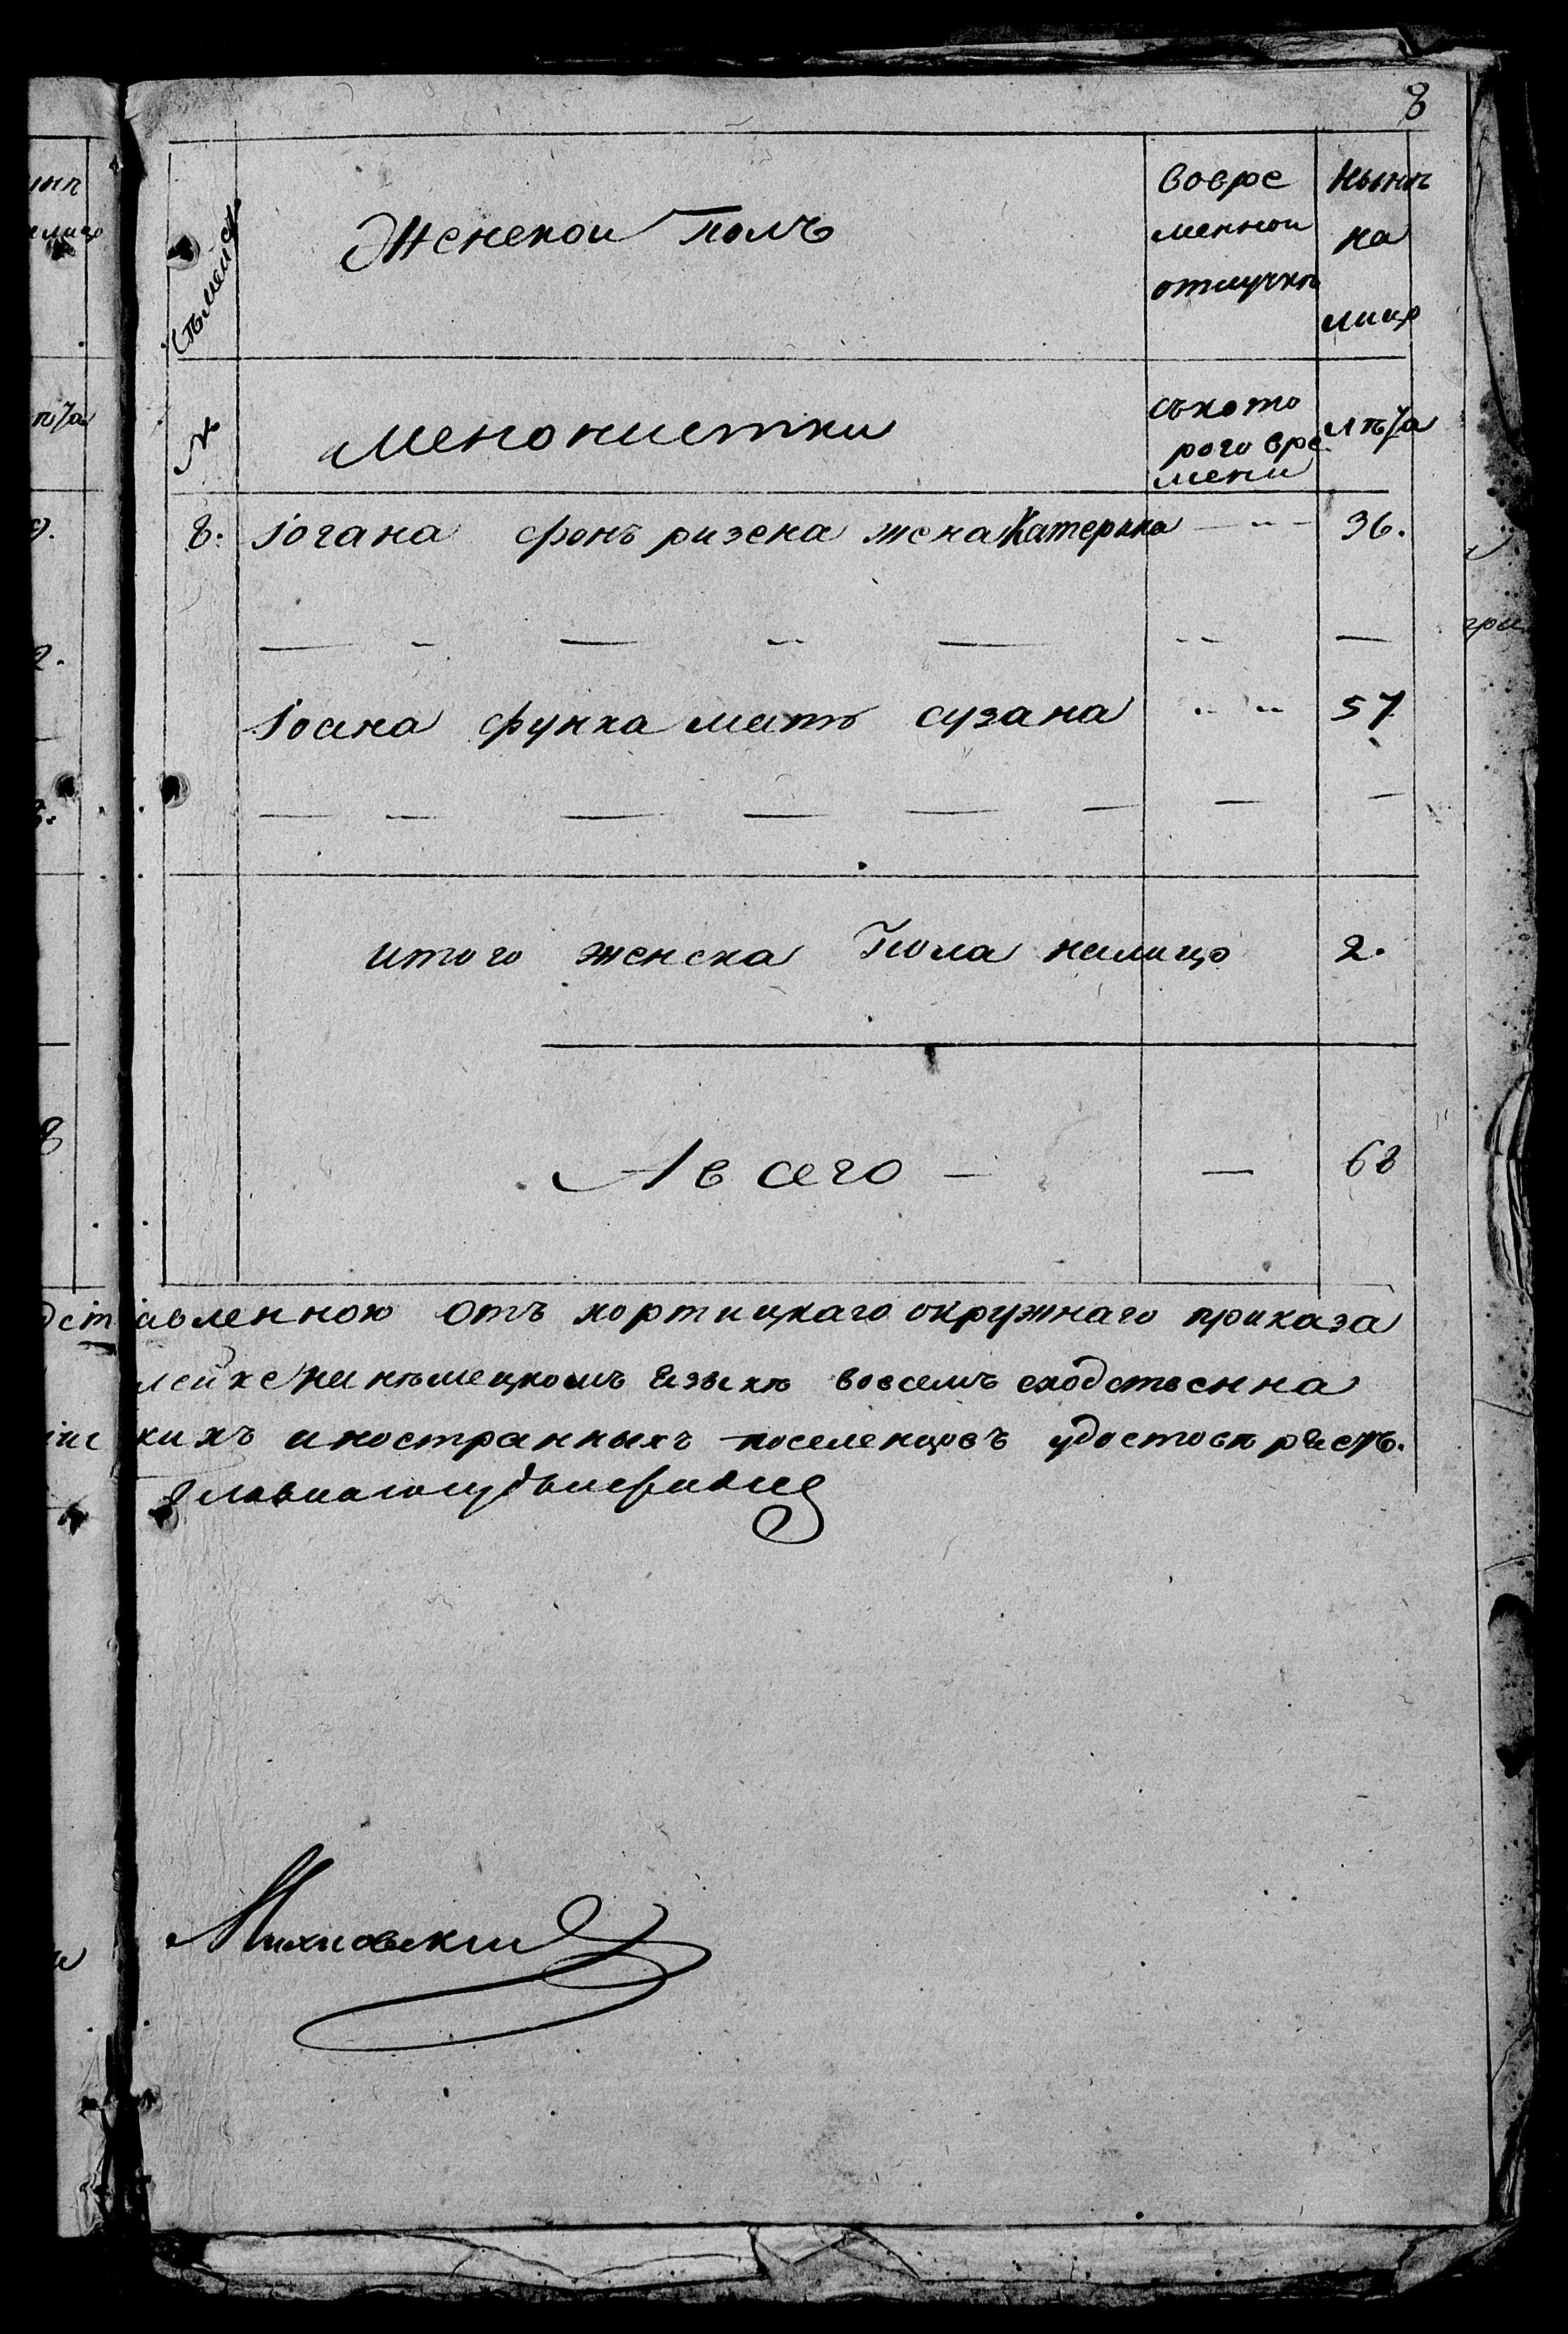 8
Семейств
Женской полъ
Вовре
менной
отлучкѣ
Нынѣ
на
лицо
№
Менонистки
съ кото
рого вре
мени
лѣта
8. Іогана фонъ ризена жена Катерина 36.
Іоана функа мать сузана 57
итого женска Пола налицо 2.
А всего — — 68
авленною отъ хортицкаго окружнаго приказа
на нѣмецкомъ езыкѣ вовсемъ сходственна
кихъ иностранныхъ поселенцовъ удостовѣряетъ.